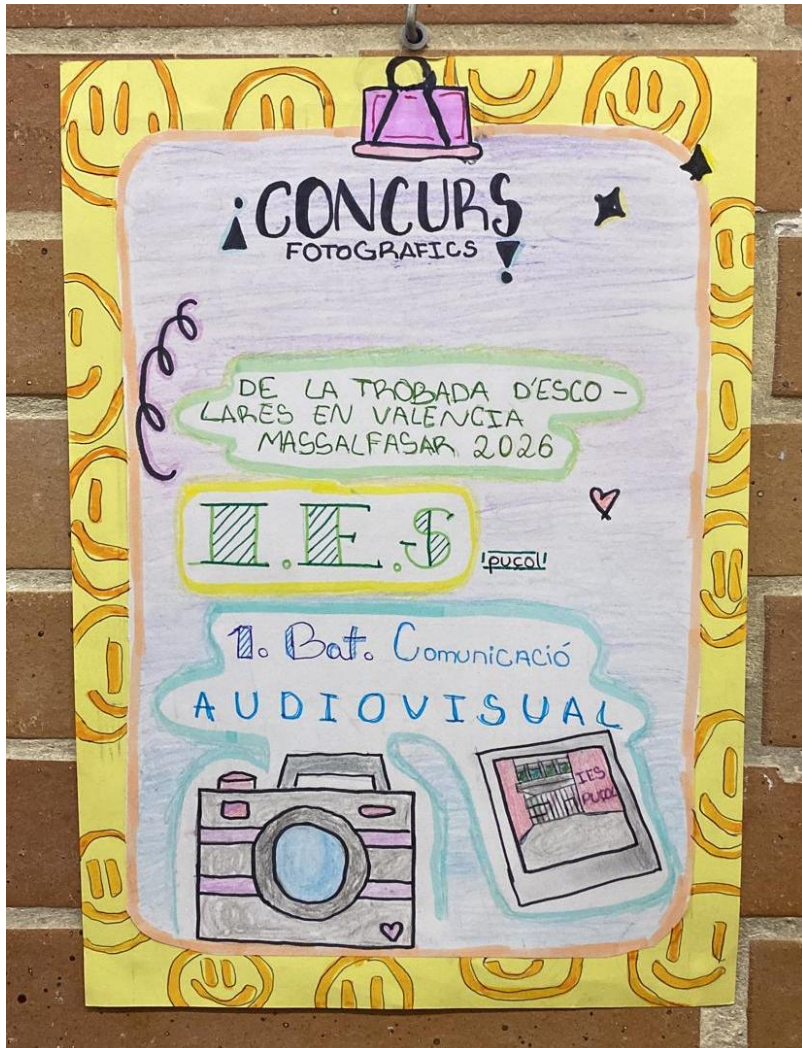 ¡CONCURS
FOTOGRAFICS!
DE LA TROBADA D'ESCO-
LARES EN VALENCIA
MASSALFASAR 2026
I.E.S
puçol
1. Bat. Comunicació
AUDIOVISUAL
IES
PUÇOL